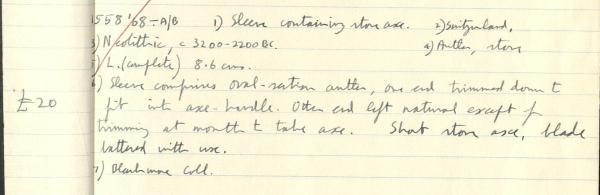 1558'68-A/B 1) Sleeve containing stone axe. 2) Switzerland,
3) Neolithic, c 3200-2200 BC. 4) Antler, stone
5) L. (complete) 8.6 cms.
6) Sleeve comprises oval-section antler, one end trimmed down to
£20
fit into axe-handle. Other end left natural except for
trimming at mouth to take axe. Short stone axe, blade
battered with use.
7) Blackmore Coll.